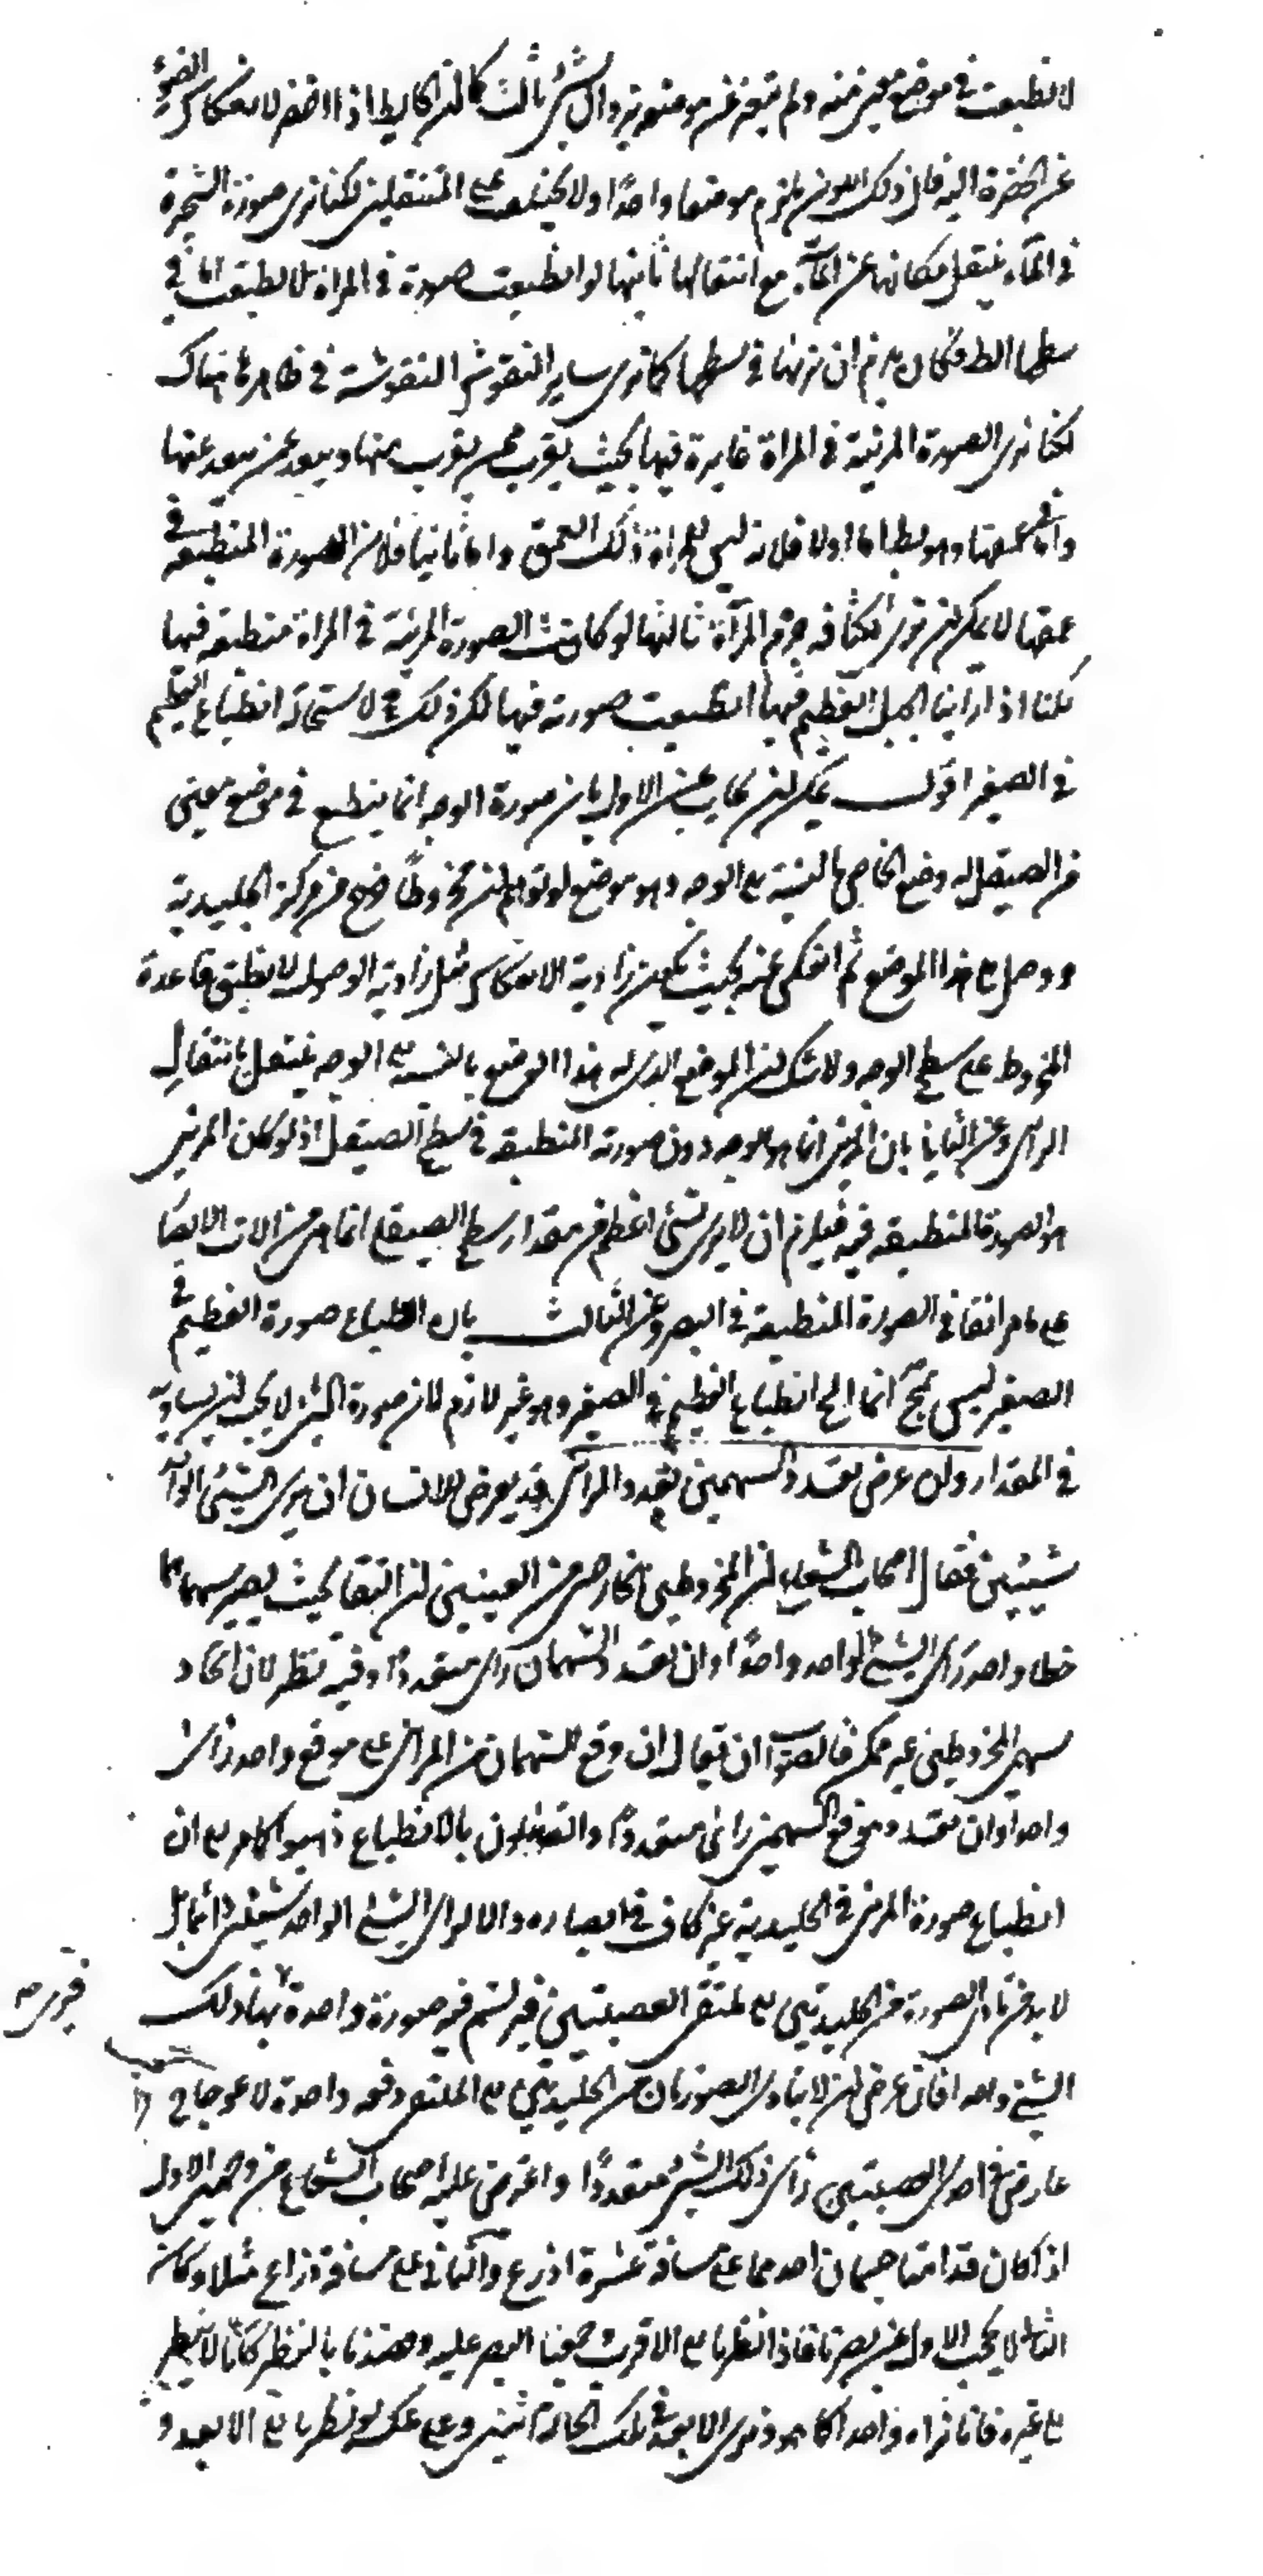 لانطبعت في موضع معين منه ولم يتغير عن موضعه بزوال شيء ثالث كما ان الحايط اذا اخضر لانعكاس الضوء
عن الخضرة اليه فان ذلك اللون يلزم موضعا واحدا ولا يختلف على المنتقلين لكنا نرى صورة الشجرة
في الماء ينتقل مكانها عن الماء مع انتقالنا ثانيها لو انطبعت صورة في المراة لانطبعت اما في
سطحها الظ فكان يلزم ان نريها في سطحها كما نرى ساير النقوش المنقوشة في ظاهرها هناك
لكنا نرى الصورة المرئية في المراة غايرة فيها بحيث يقرب ممن يقرب منها ويبعد عمن يبعد عنها
واما في عمقها وهو بط اما اولا فلانه ليس للمراة ذلك العمق واما ثانيا فلان الصورة المنطبعة في
عمقها لا يمكن ان ترى لكثافة جرم المرآة ثالثها لو كانت الصورة المرئية في المراة منطبعة فيها
لكنا اذا راينا الجبل العظيم فيها انطبعت صورته فيها لكن ذلك مح لاستحالة انطباع العظيم
في الصغير اقول يمكن ان يجاب عن الاول بان صورة الوجه انما ينطبع في موضع معين
من الصيقل له وضع الخاص بالنسبة الى الوجه وهو موضع لو توهم ان مخروطا خرج من مركز الجليدية
ووصل الى هذا الموضع ثم انعكس عنه بحيث يكون زاوية الانعكاس مثل زاوية الوصول لانطبق قاعدة
المخروط على سطح الوجه ولا شك ان الموضع الذي له هذا الوضع بالنسبة الى الوجه ينتقل بانتقال
الرائي وعن الثاني بان المرئي انما هو الوجه دون صورته المنطبعة في سطح الصيقل اذ لو كان المرئي
هو الصورة المنطبعة فيه فيلزم ان لا يرى شيء اعظم من مقدار سطح الصيقل انما هي من الات الابصار
على ما مر انفا في الصورة المنطبعة في البصر وعن الثالث بان انطباع صورة العظيم في
الصغير ليس بمح انما المح انطباع العظيم في الصغير وهو غير لازم لان صورة الشيء لا يجب ان يساويه
في المقدار وان عرض تعدد السهمين تعدد المرئي قد يعرض للانسان ان يرى الشيء الواحد
شيئين فقال اصحاب الشعاع ان المخروطين الخارجين من العينين ان التقيا بحيث يصير سهماهما
خطا واحدا رأى الشيء الواحد واحدا وان تعدد السهمان رأى متعددا وفيه نظر لان اتحاد
سهمي المخروطين غير ممكن فالصواب ان يقال ان وقع السهمان من المرئي على موقع واحد رأى
واحدا وان تعدد موقع السهمين رأى متعددا والقائلون بالانطباع ذهبوا الى ان
انطباع صورة المرئي في الجليدية غير كاف في ابصاره والا لرأى الشيء الواحد شيئين دائما بل
لا بد من تأدي الصورة من الجليدتين الى ملتقى العصبتين فيرتسم فيه صورة واحدة بها ذلك
فيرى صه
الشيء واحدا فان عرض ان لا يتادى الصورتان من الجليدتين الى الملتقى دفعة واحدة لاعوجاج
عارض في احدى العصبتين رأى ذلك الشيء متعددا واعترض عليه اصحاب الشعاع من وجهين الاول
اذ كان قدامنا جسمان احدهما على مسافة عشرة اذرع والثاني على مسافة ذراع مثلا وكان
الثاني لا يحجب الاول عن بصرنا فاذا نظرنا الى الاقرب وجمعنا البصر عليه وقصدنا بالنظر كانا لا ننظر
الى غيره فانا نراه واحدا كما هو ونرى الابعد في تلك الحالة اثنين وعلى عكس لو نظرنا الى الابعد و